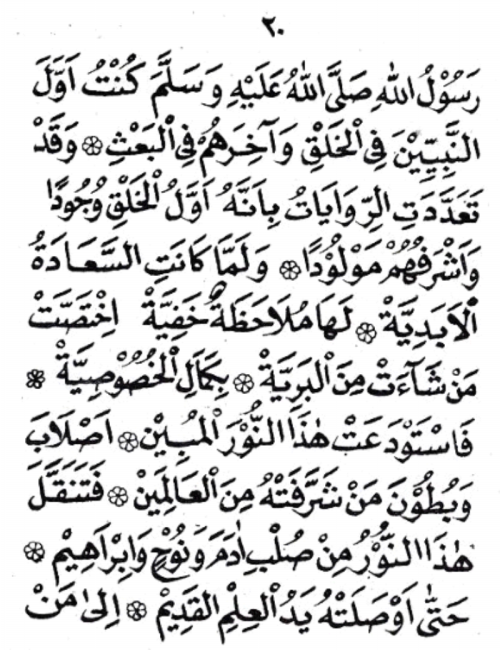 ٢٠
رَسُوْلُ اللهِ صَلَّى اللهُ عَلَيْهِ وَسَلَّمَ كُنْتُ اَوَّلَ
النَّبِيِّيْنَ فِى الْخَلْقِ وَآخِرَهُمْ فِى الْبَعْثِ ۞ وَقَدْ
تَعَدَّدَتِ الرِّوَايَاتُ بِاَنَّهُ اَوَّلُ الْخَلْقِ وُجُوْدًا
وَاَشْرَفُهُمْ مَوْلُوْدًا ۞ وَلَمَّا كَانَتِ السَّعَادَةُ
الْاَبَدِيَّةُ ۞ لَهَا مُلَاحَظَةٌ خَفِيَّةْ اِخْتَصَّتْ
مَنْ شَآءَتْ مِنَ الْبَرِيَّةْ ۞ بِكَمَالِ الْخُصُوْصِيَّةْ ۞
فَاسْتَوْدَعَتْ هٰذَا النُّوْرَ الْمُبِيْنْ ۞ اَصْلَابَ
وَبُطُوْنَ مَنْ شَرَّفَتْهُ مِنَ الْعَالَمِيْنْ ۞ فَتَنَقَّلَ
هٰذَا النُّوْرُ مِنْ صُلْبِ اٰدَمَ وَنُوْحٍ وَاِبْرَاهِيْمْ ۞
حَتّٰى اَوْصَلَتْهُ يَدُ الْعِلْمِ الْقَدِيْمْ ۞ اِلٰى مَنْ